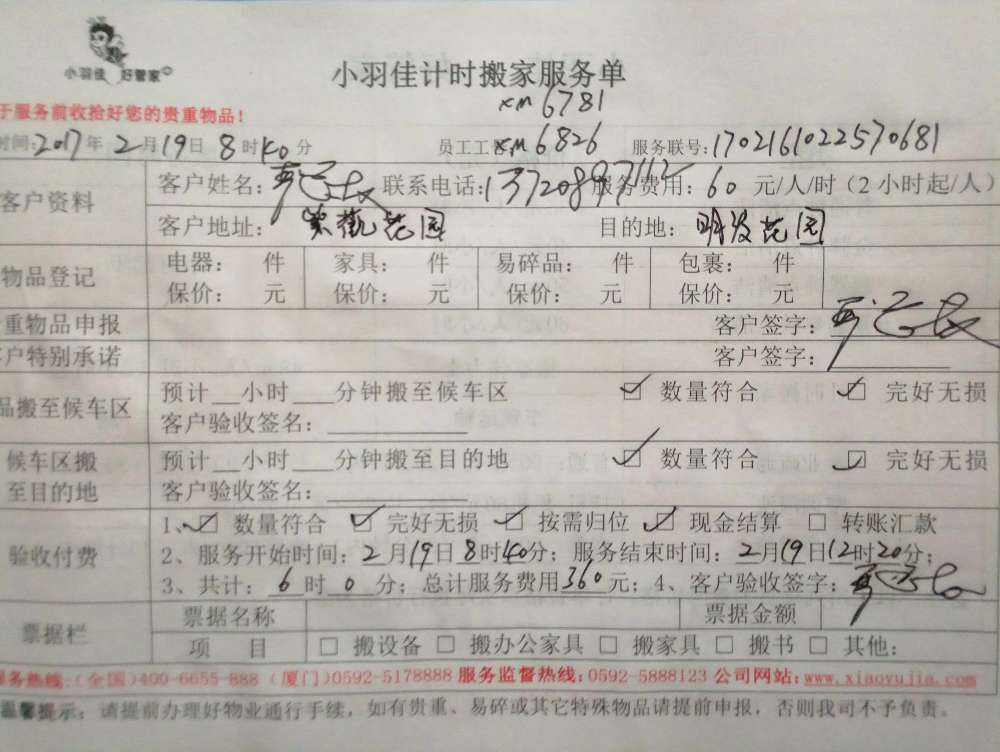 小羽佳 好管家
小羽佳计时搬家服务单
于服务前收拾好您的贵重物品!
xm6781
时间:2017年2月19日8时40分 员工工 xm6826 服务联号:170216102257068​1
客户资料 客户姓名: 联系电话: 服务费用:60元/人/时(2小时起/人)
客户地址: 花园 目的地:明发花园
物品登记 电器: 件 家具: 件 易碎品: 件 包裹: 件
保价: 元 保价: 元 保价: 元 保价: 元
重物品申报 客户签字:
户特别承诺 客户签字:
品搬至候车区 预计 小时 分钟搬至候车区 ☑ 数量符合 ☑ 完好无损
客户验收签名:
候车区搬至目的地 预计 小时 分钟搬至目的地 ☑ 数量符合 ☑ 完好无损
客户验收签名:
验收付费 1、☑ 数量符合 ☑ 完好无损 ☑ 按需归位 ☑ 现金结算 □ 转账汇款
2、服务开始时间:2月19日8时40分;服务结束时间:2月19日12时20分;
3、共计:6时0分;总计服务费用360元;4、客户验收签字:
票据栏 票据名称 票据金额
项目 □ 搬设备 □ 搬办公家具 □ 搬家具 □ 搬书 □ 其他:
服务热线:(全国)400-6655-888 (厦门)0592-5178888 服务监督热线:0592-5888123 公司网站:www.xiaoyujia.com
温馨提示:请提前办理好物业通行手续,如有贵重、易碎或其它特殊物品请提前申报,否则我司不予负责。